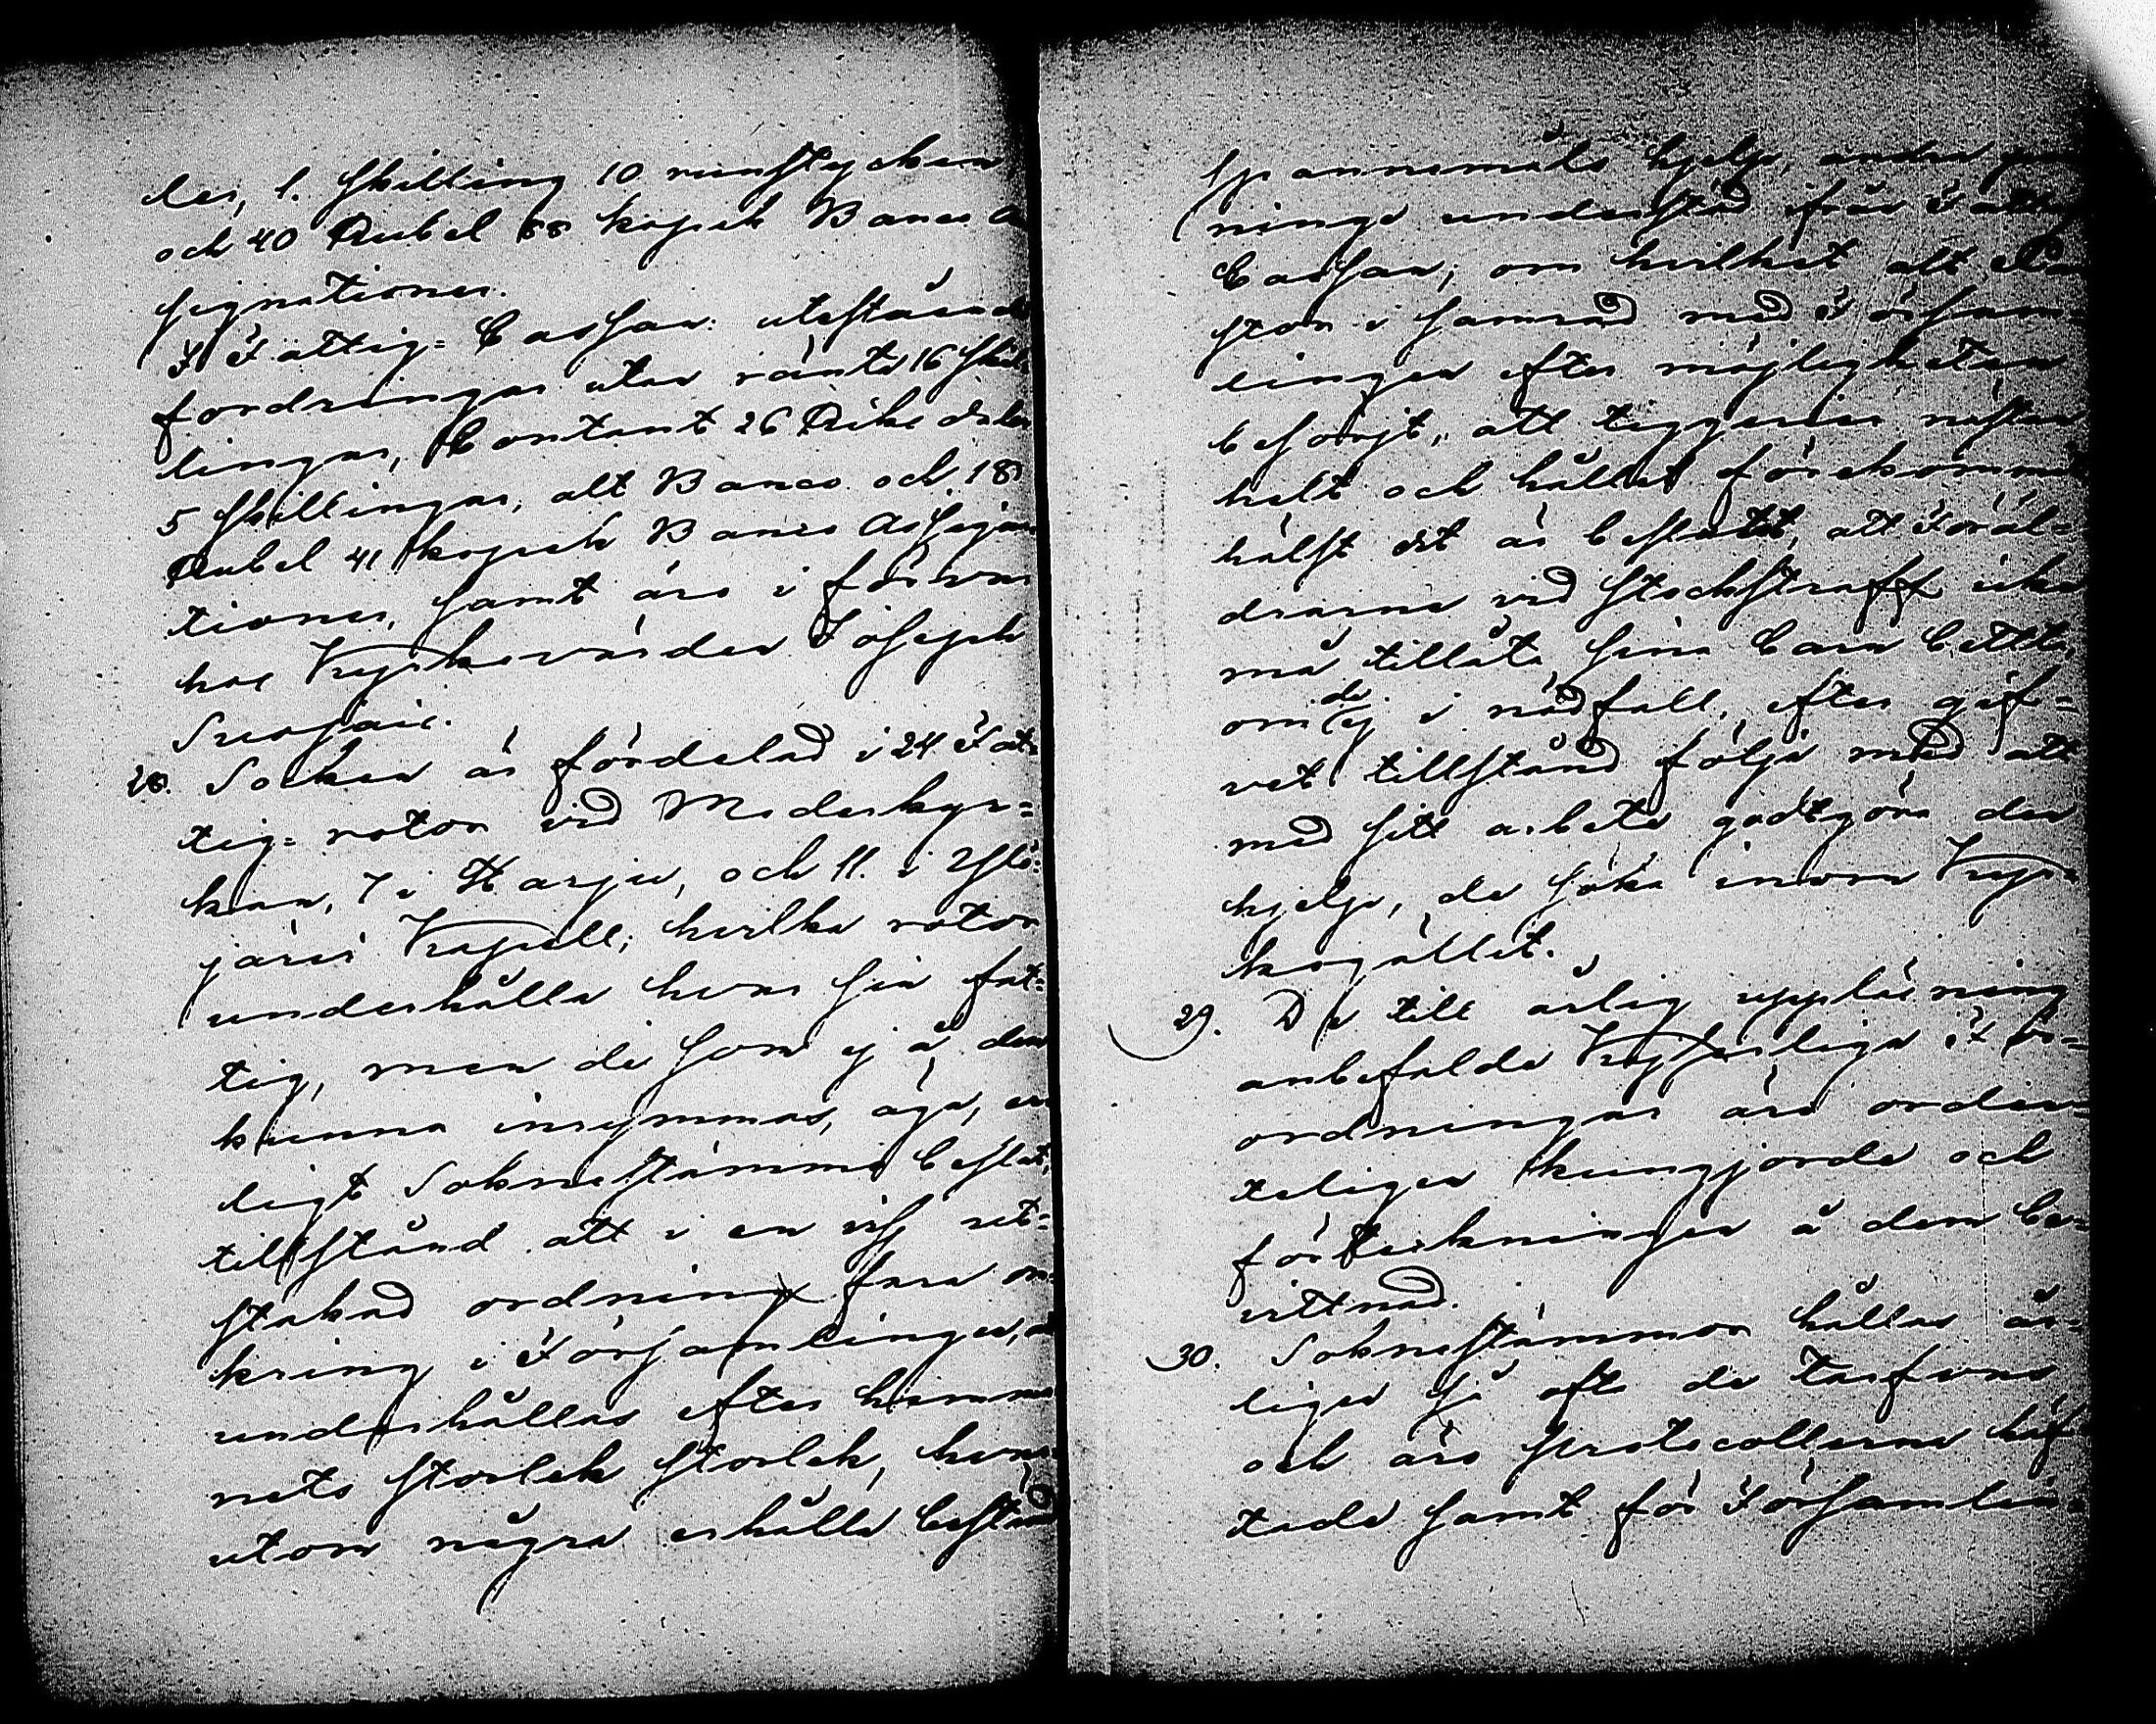 ler, 1. skilling 10 runstycken
och 40 Rubel 58 kopek Banco A
signationer.
I Fattig-Cassan: utestående
fordringar utan ränta 16 skil-
lingar, Contant 26 Riksdaler
5 skillingar, alt Banco och 18
Rubel 41 kopek Banco Assigna
tioner, samt äro i förvar
hos Kyrkovärden Joseph
28. Socken är fördelad i 24 Fat-
tig-rotor vid Moderkyr-
kan, 7 i Karju, och 11. i
järvi Kapell; hvilka rotor
underhålla hvar sin fat-
tig, men de som ej å dem
kunna inrymmas, äga, en
ligt Sokne stämmo beslut,
tillstånd att i en viss ut-
stakad ordning fara om-
kring i Församlingen, o
underhållas efter hemma
nets storlek storlek, hvar
utom några erhålla bestånd
spannemåls hjelp, andra pen
ninge understöd ifrån Fattig
Cassan; om hvilket alt Pa
stor i samråd med Försam-
lingen efter möjligheten
besörjt, att tiggerier nästan
helt och hållet förekommit
hälst det är beslutit, att Föräl-
drarne vid stockstraff icke
må tillåta sina barn bettla,
om de ej i nödfall, efter gif-
vet tillstånd följa med att
med sitt arbete godtgöra den
hjelp, de söka inom Kyr
kogället.
29. De till årlig uppläsning
anbefalde Kejserliga För-
ordningar äro orden-
teligen kungjorde och
förteckningen å dem be-
vittnad.
30. Soknestämmor hållas år-
ligen så ofta de tarfvas
och äro Protocollerna häf
tade samt för Församlin-